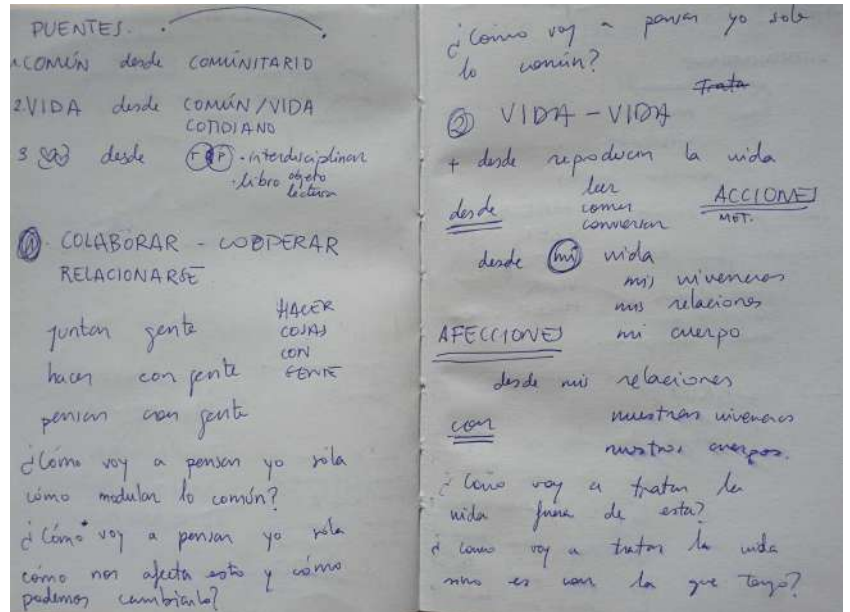 PUENTES.
1. COMÚN desde COMUNITARIO
2. VIDA desde COMÚN/VIDA
COTIDIANO
3 desde r P - interdisciplinar
- libro objeto
lectura
1. COLABORAR - COOPERAR
RELACIONARSE
juntar gente
hacer con gente
pensar con gente
HACER
COSAS
CON
GENTE
¿Cómo voy a pensar yo sola
cómo modular lo común?
¿Cómo voy a pensar yo sola
cómo nos afecta esto y cómo
podemos cambiarlo?
¿Cómo voy a pensar yo sola
lo común?
Trata
2 VIDA - VIDA
+ desde reproducir la vida
desde leer
comer
conversar
ACCIONES
MET.
desde mi vida
mis vivencias
mis relaciones
AFECCIONES mi cuerpo
desde mis relaciones
con nuestras vivencias
nuestros cuerpos.
¿Cómo voy a tratar la
vida fuera de esta?
¿Cómo voy a tratar la vida
sino es con la que tengo?